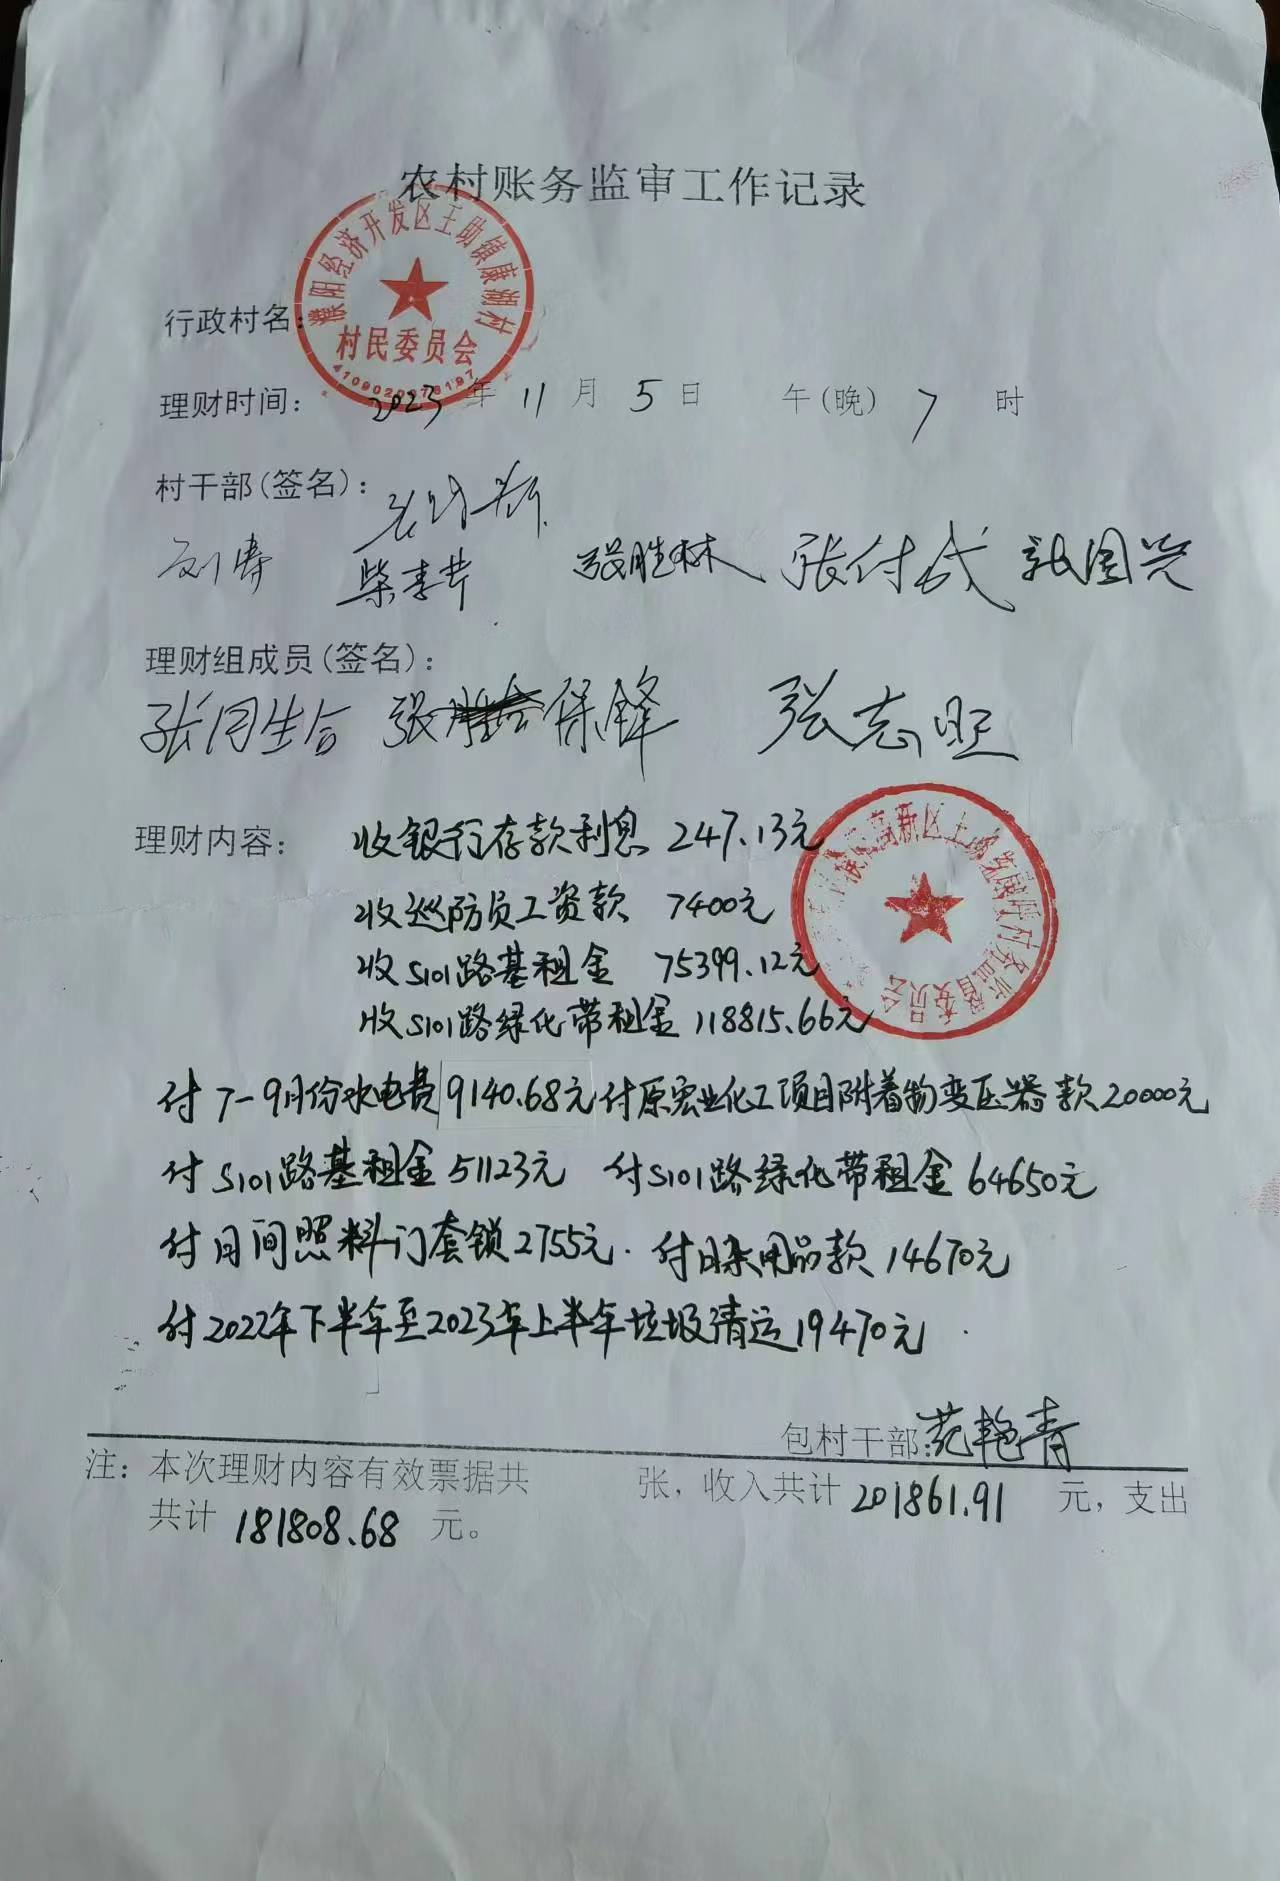 农村账务监审工作记录
濮阳经济开发区王助镇康湖村
村民委员会
4109020078197
行政村名:
理财时间: 2023年 11月 5日 午(晚) 7 时
村干部(签名):
刘涛 柴李芹 张胜林 张付成 张国兴
理财组成员(签名):
张同生合 张 保锋 张志旺
理财内容: 收银行存款利息 247.13元
收巡防员工资款 7400元
收S101路基租金 75399.12元
收S101路绿化带租金 118815.66元
村务监督委员会
付7-9月份水电费9140.68元 付原宏业化工项目附着物变压器款20000元
付S101路基租金51123元 付S101路绿化带租金64650元
付日间照料门套锁2755元. 付日杂用品款14670元
付2022年下半年至2023年上半年垃圾清运19470元.
包村干部:范艳青
注: 本次理财内容有效票据共 张, 收入共计 201861.91 元, 支出
共计 181808.68 元。